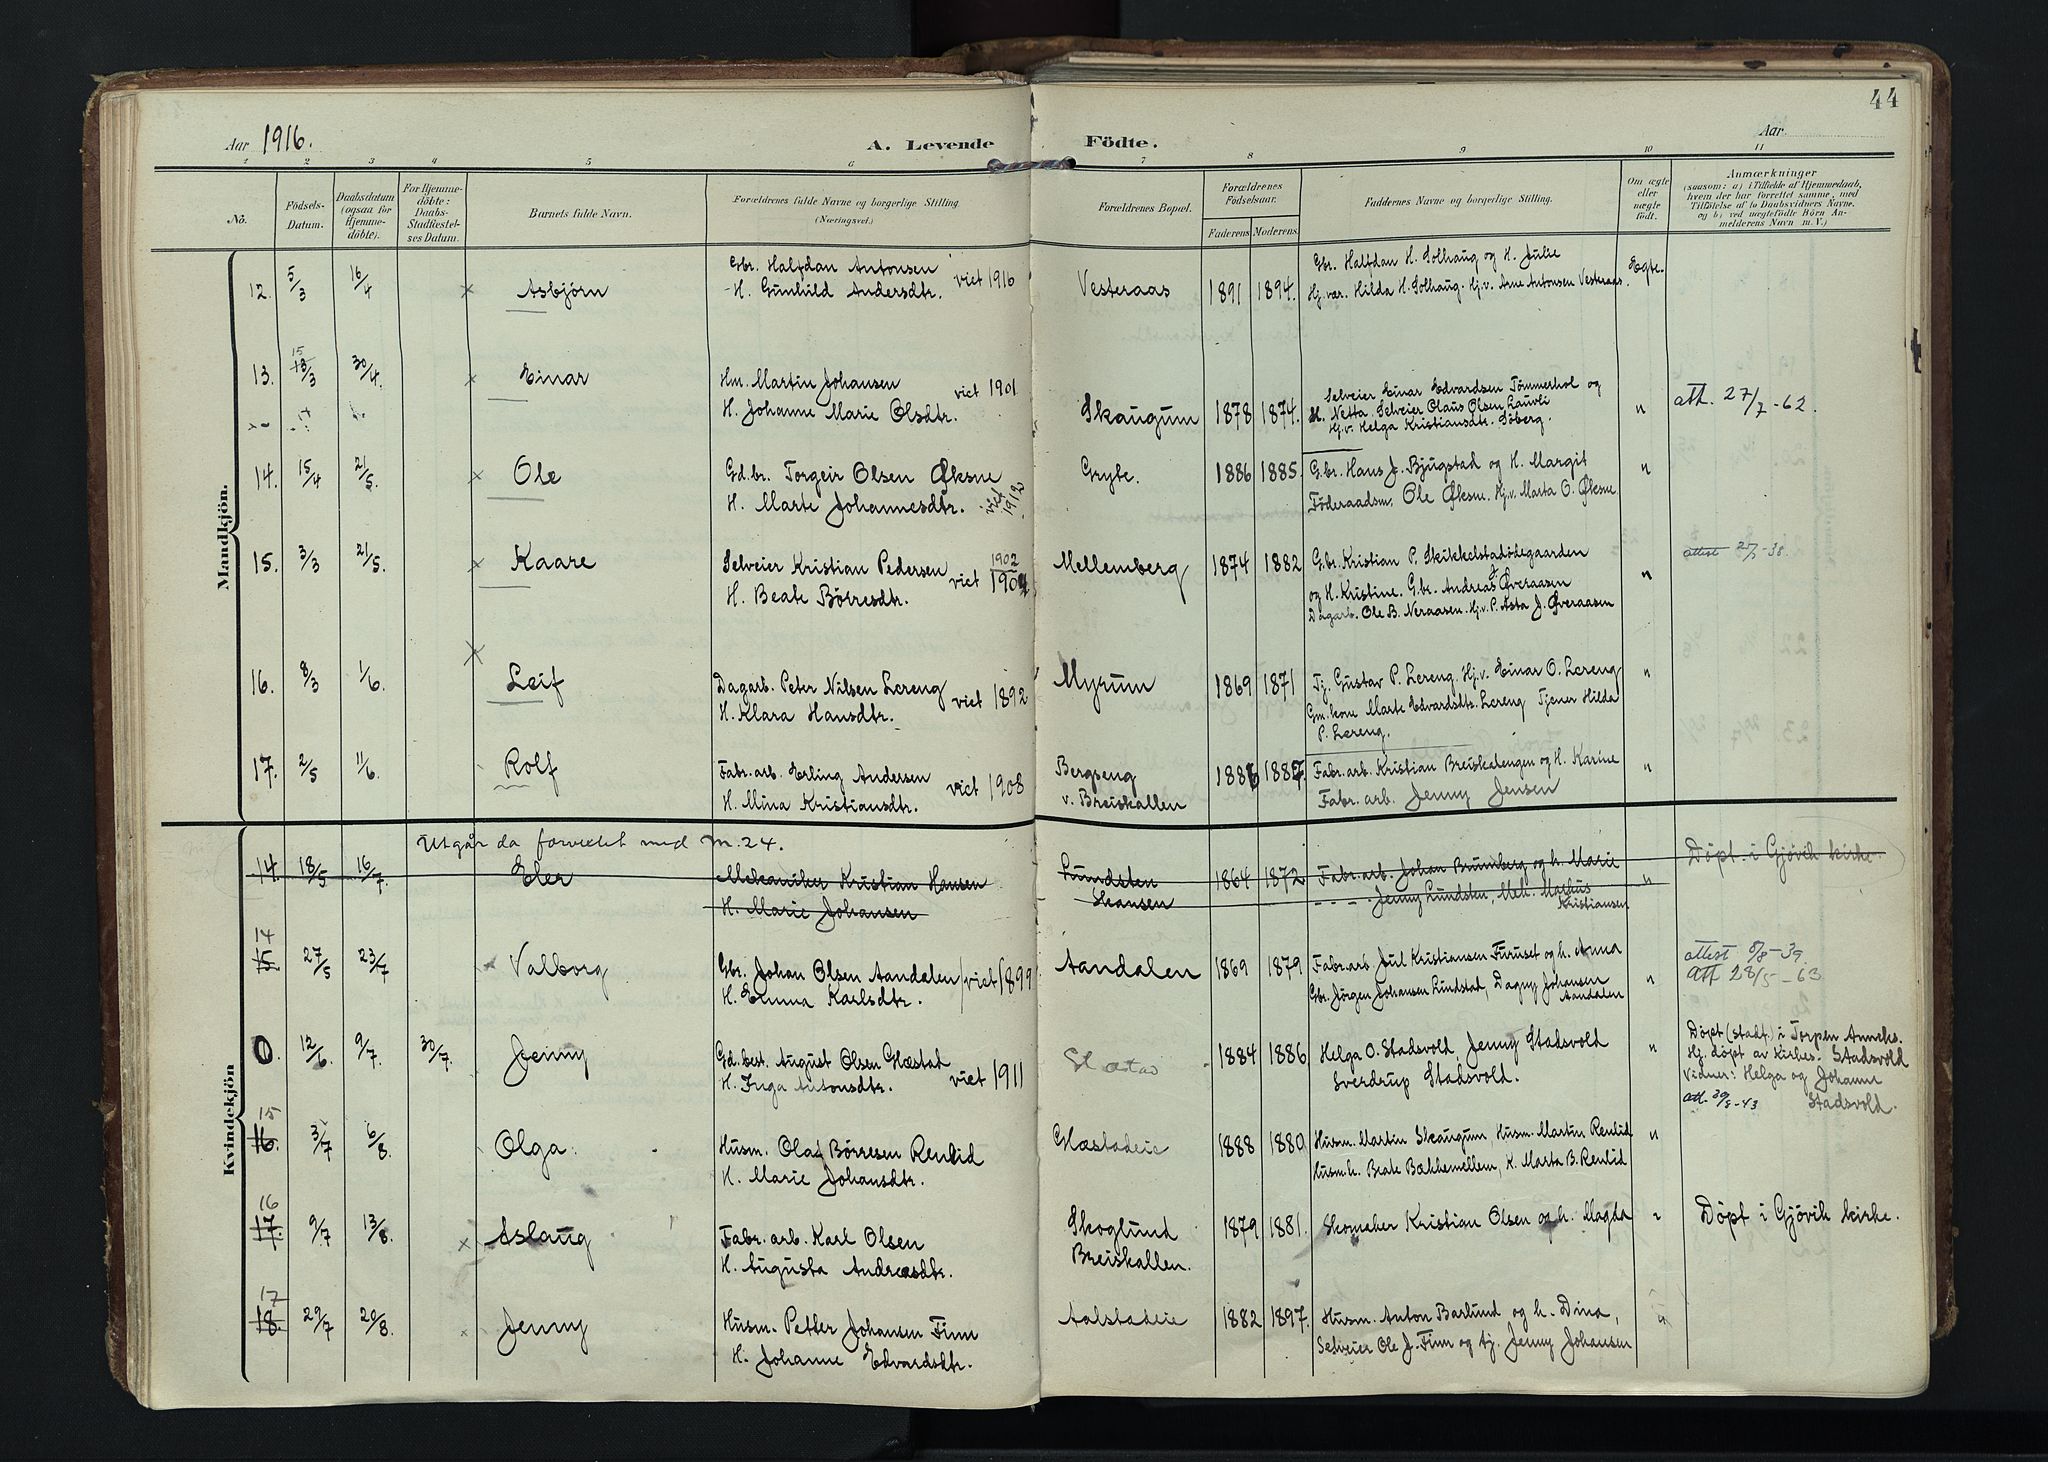 44
Aar 1916.
A. Levende Födte.
Aar
1 2 3 4 5 6 7 8 9 10 11
No.
Födsels-
Datum.
Daabsdatum
(ogsaa for
Hjemme-
döbte).
For Hjemme-
döbte:
Daabs-
Stadfestel-
ses Datum.
Barnets fulde Navn.
Forældrenes fulde Navne og borgerlige Stilling
(Næringsvei.)
Forældrenes Bopæl.
Forældrenes
Födselsaar.
Faderens Moderens.
Faddernes Navne og borgerlige Stilling.
Om ægte
eller
uægte
födt.
Anmærkninger
(saasom: a) i Tilfælde af Hjemmedaab,
hvem der har forrettet samme, med
Tilföielse af to Daabsvidners Navne,
og b) ved uægtefödte Börn An-
melderens Navn m. V.)
Mandkjön.
12. 5/3 16/4 × Asbjørn
Gbr. Halfdan Antonsen
H. Gunhild Andersdtr. viet 1916
Vesteraas 1891 1894.
Gbr. Halfdan H. Solhaug og H. Julie
Hj.vær. Hilda H. Solhaug. Hj.v. Arne Antonsen Vesteraas.
Egte.
13. 15 13/3 30/4. × Einar
Hm. Martin Johansen
H. Johanne Marie Olsdtr. viet 1901
Skaugum 1878 1874.
Selveier Einar Edvardsen Tömmerhol og
H. Netta. Selveier Olaus Olsen Lauvli
Hj.v. Helga Kristiansdtr. Söberg.
" att. 27/7-62.
14. 15/4 21/5. × Ole
Gd.br. Torgeir Olsen Øksne
H. Marte Johannesdtr. viet 1912
Grybe. 1886 1885.
G.br. Hans J. Bjugstad og H. Margit
Föderaadsm. Ole Øksne. Hj.v. Marta O. Øksne
"
15. 3/3 21/5. × Kaare
Selveier Kristian Pedersen
H. Beate Börresdtr. viet 1902 1904
Mellemberg 1874 1882
G.br. Kristian P. Skikkelstadödegaarden
og H. Kristine. G.br. Andreas J. Øveraasen
Dagarb. Ole B. Neraasen. Hj.v. P. Asta J. Øveraasen
"
16. 8/3 1/6. × Leif
Dagarb. Peter Nilsen Lereng
H. Klara Hansdtr. viet 1892
Myrum 1869 1871
Tj. Gustav P. Lereng. Hj.v. Einar O. Lereng
Gm.kone Marte Edvardsdtr. Lereng Tjener Hilda
P. Lereng.
"
17. 2/5 11/6. Rolf
Fabr.arb. Erling Andersen
H. Mina Kristiansdtr. viet 1908
Bergseng
v. Breiskallen
1886 1887.
Fabr.arb. Kristian Breiskalengen og H. Karine
Fabr. arb. Jenny Jensen
"
Kvindekjön
Utgår da forvexlet med M.24.
14. 18/5 16/7.
Mekaniker Kristian Hansen
H. Marie Johansen
Lundsten
Skansen
1864 1872
Fabr.arb. Johan Brumberg og h. Marie
Jenny Lundsten, Mek. Markus
Kristiansen
" Döpt i Gjövik kirke.
14
15. 27/5 23/7 Valborg
Gbr. Johan Olsen Aandalen
H. Emma Karlsdtr. viet 1899
Aandalen 1869 1879
Fabr.arb. Jul Kristiansen Furuset og h. Anna
Gbr. Jörgen Johansen Lundstad, Dagny Johansen
Aandalen
"
attest 8/8-39.
att 28/5-63
0. 12/6. 9/7. 30/7. Jenny
Gd.best. August Olsen Glæstad
H. Inga Antonsdtr. viet 1911
1884 1886
Helga O. Stadsvold, Jenny Stadsvold
Sverdrup Stadsvold.
"
Döpt (stadf.) i Torpen Anneks.
Hj. döpt av Kirkes. Stadsvold
Vidner: Helga og Johanne
Stadsvold.
15
16. 3/7 6/8. Olga
Husm. Olaf Börresen Renlid
H. Marie Johansdtr.
Glæstadeie 1888 1880
Husm. Martin Skaugum, Husm. Martin Renlid
Husm.h. Beate Bækkemellem, K. Marta B. Renlid
"
16
17. 9/7 13/8. × Aslaug
Fabr. arb. Karl Olsen
H. Augusta Andreasdtr.
Skoglund
Breiskallen.
1879 1881.
Skomaker Kristian Olsen og h. Magda
"
Döpt i Gjövik kirke.
17
18. 29/7 20/8. × Jenny
Husm. Petter Johansen Finn
H. Johanne Edvardsdtr.
Aalstadeie 1882 1897.
Husm. Anton Barlund og h. Dina,
Selveier Ole J. Finn og tj. Jenny Johansen
"